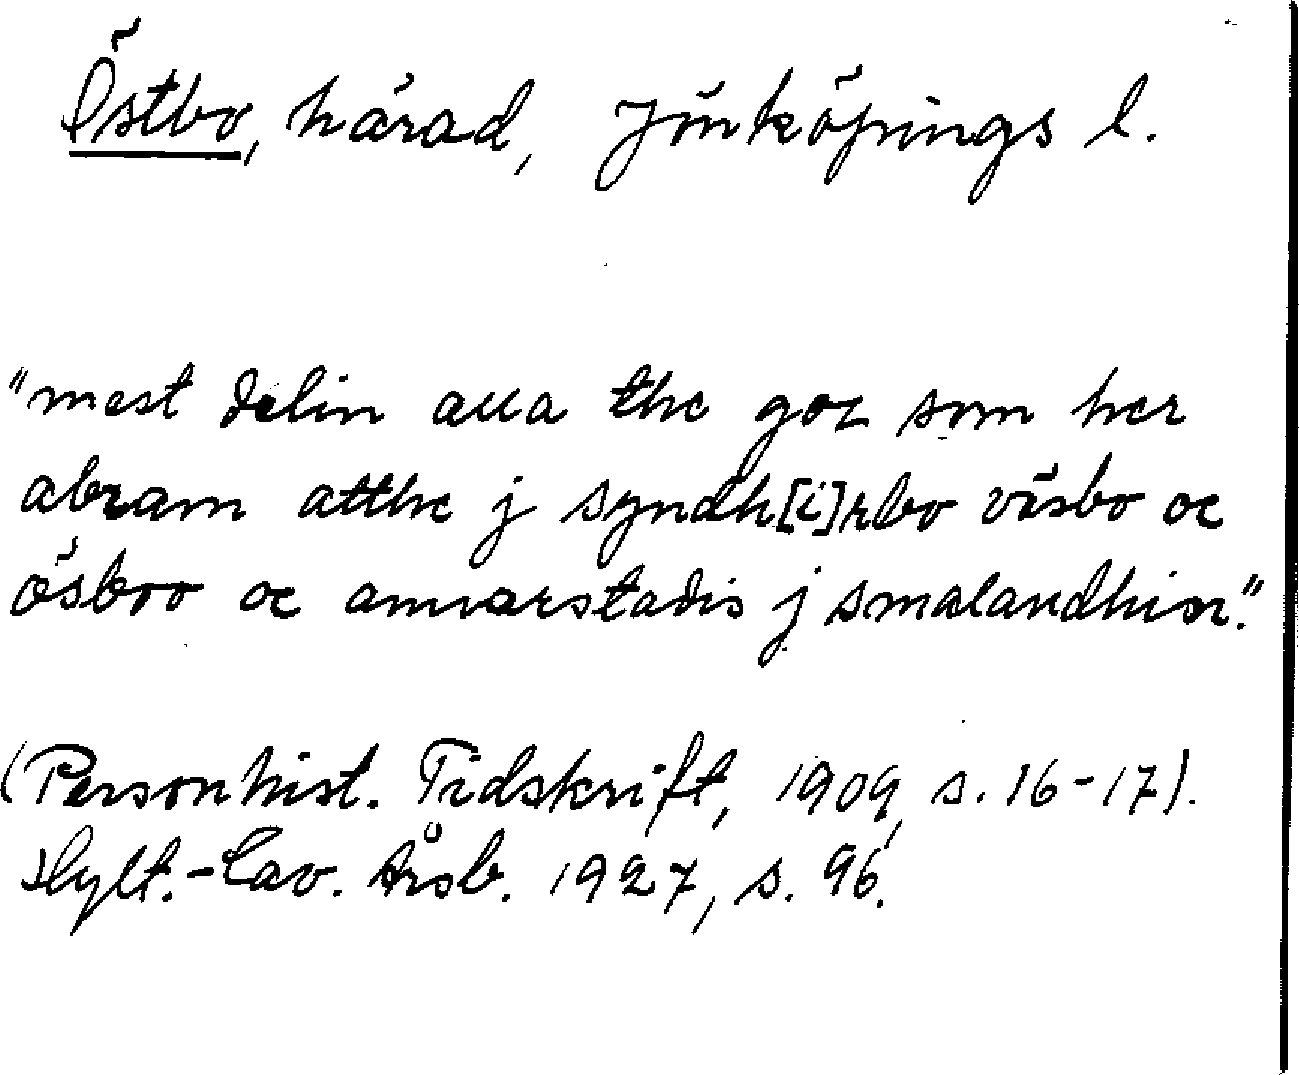 Östbo, härad, Jönköpings l.
"mest delin alla the goz som her
abram atthe j syndh[i]rbo väsbo oc
ösboo oc annarstadis j smalandhin."
(Personhist. Tidskrift, 1909, s. 16-17).
Hylt.-Cav. Årsb. 1927, s. 96.